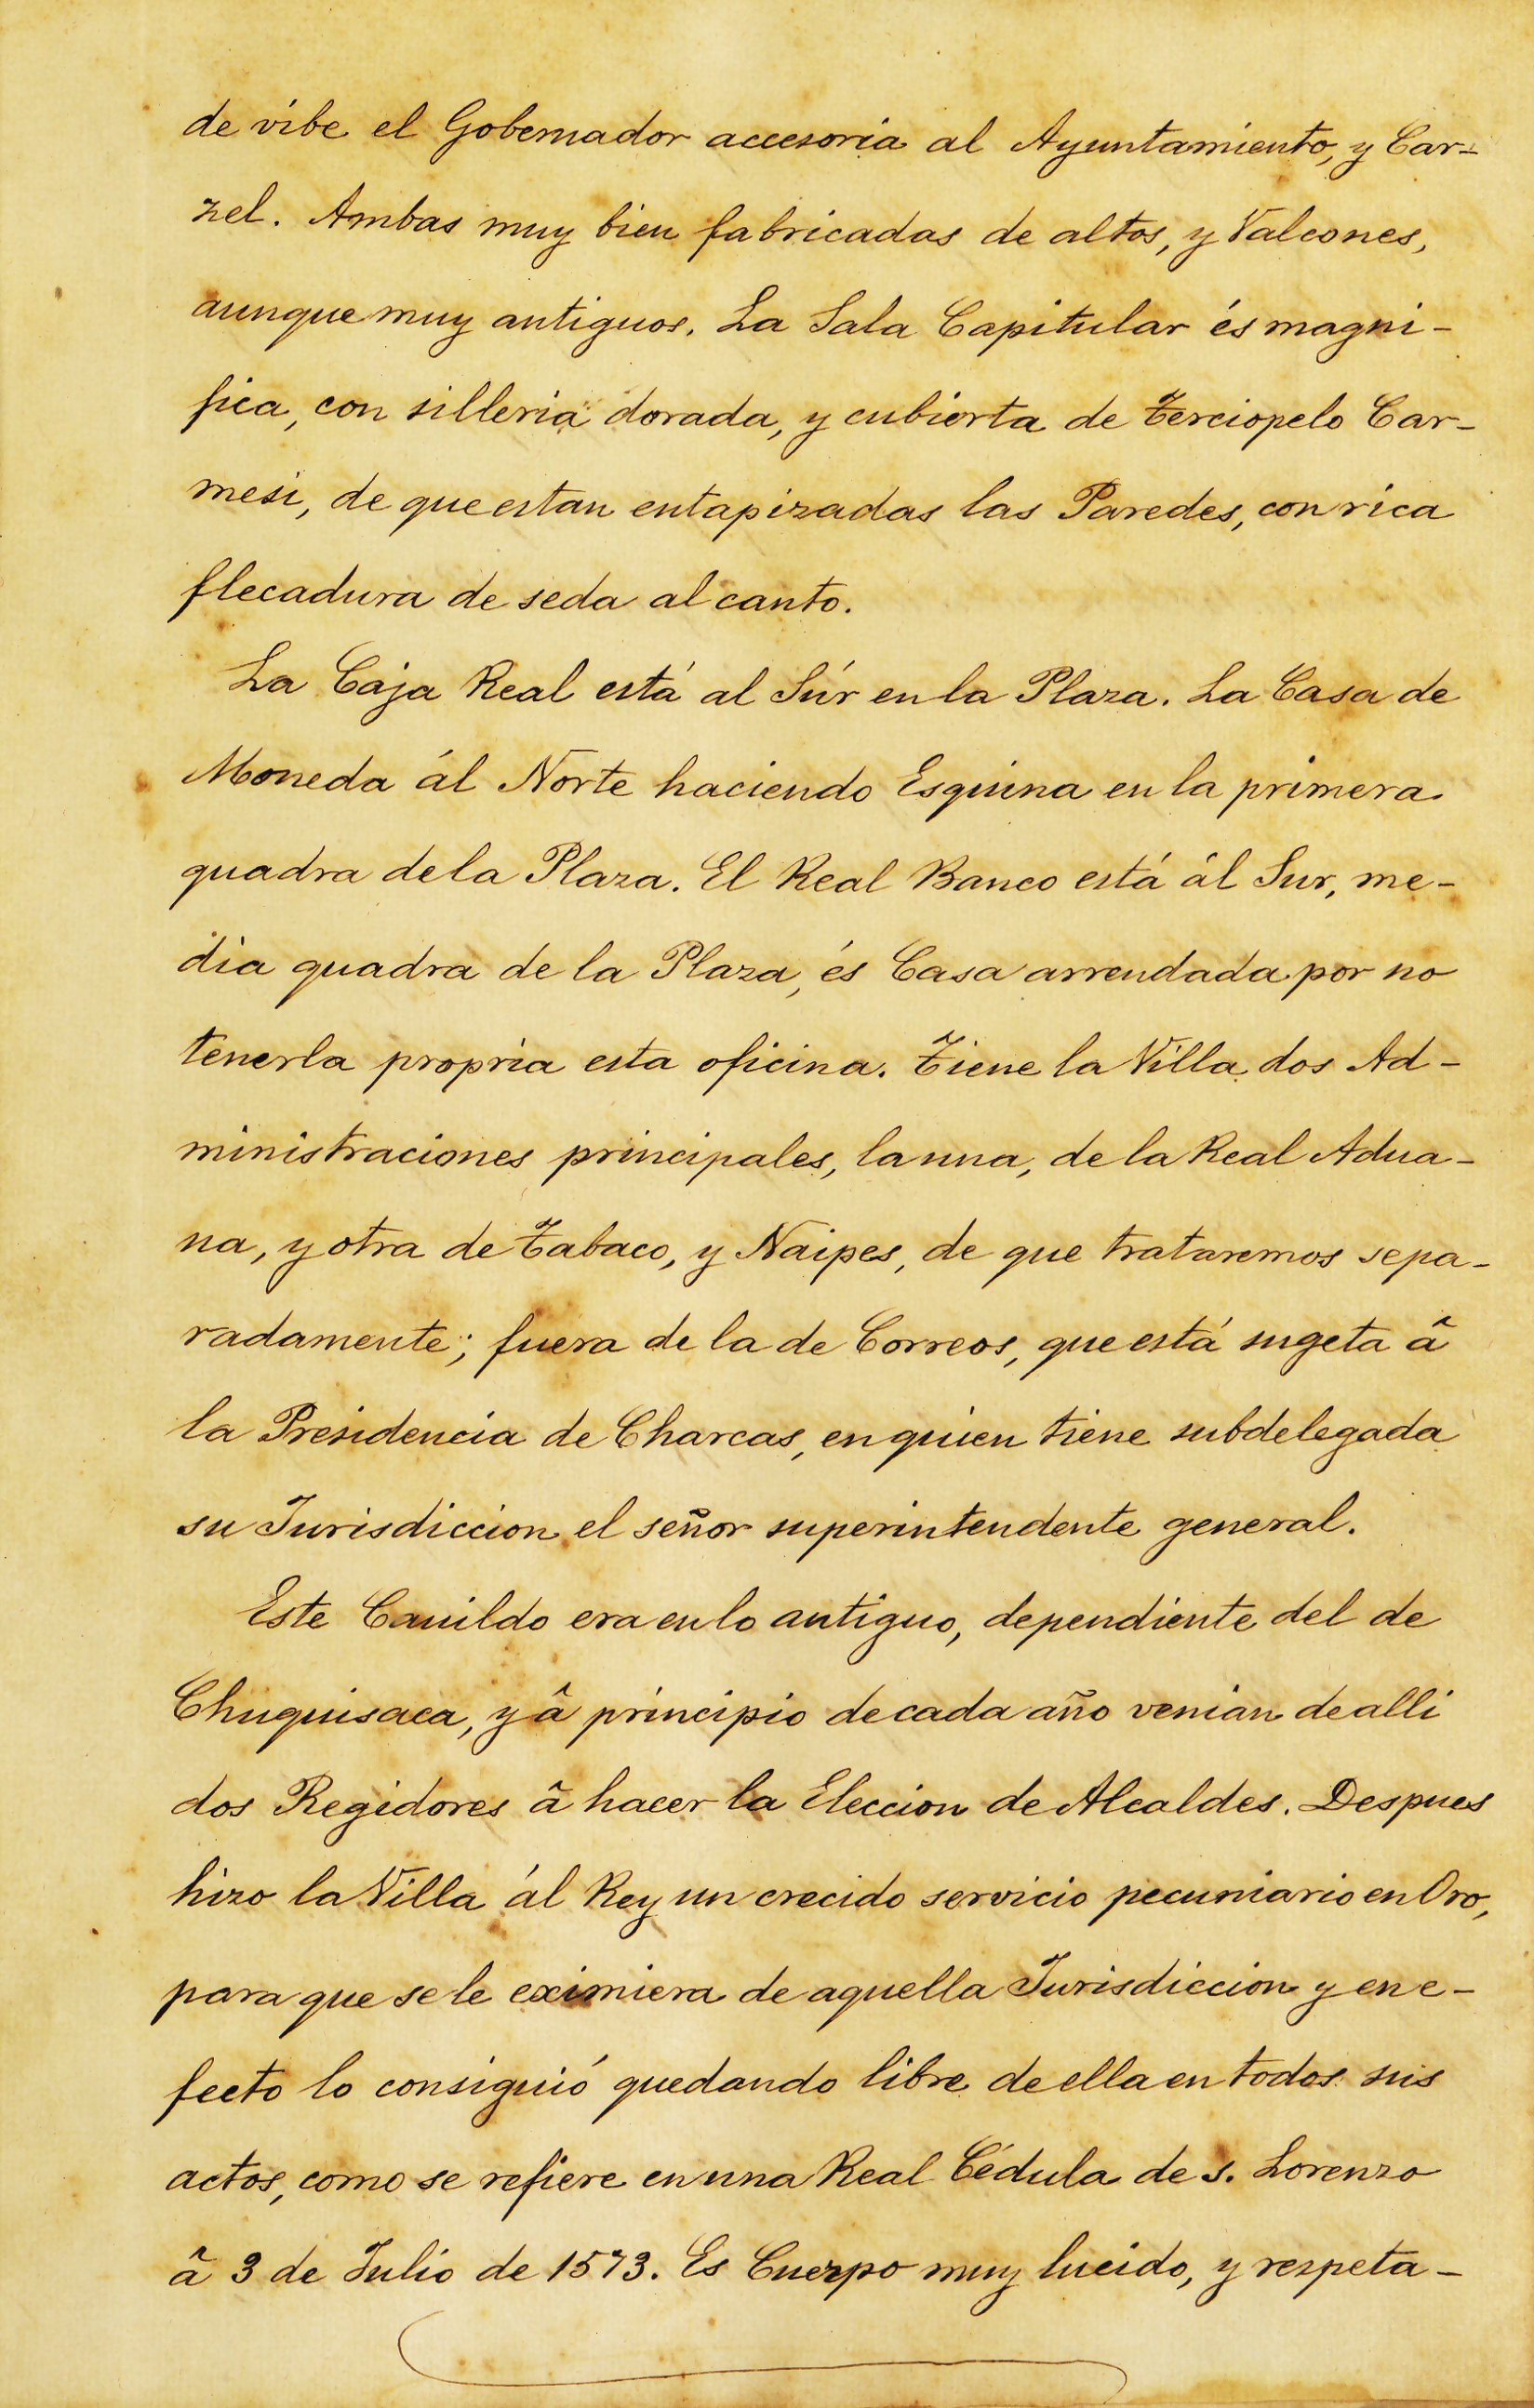 de vibe el Gobernador accesoria al Ayuntamiento, y Car-
zel. Ambas muy bien fabricadas de altos, y Valcones,
aunque muy antiguos. La Sala Capitular és magni-
fica, con silleria dorada, y cubierta de terciopelo Car-
mesi, de que estan entapizadas las Paredes, con rica
flecadura de seda al canto.
La Caja Real está al Súr en la Plaza. La Casa de
Moneda ál Norte haciendo Esquina en la primera
quadra de la Plaza. El Real Banco está ál Sur, me-
dia quadra de la Plaza, és Casa arrendada por no
tenerla propria esta oficina. Tiene la Villa dos Ad-
ministraciones principales, la una, de la Real Adua-
na, y otra de Tabaco, y Naipes, de que trataremos sepa-
radamente; fuera de la de Correos, que está sugeta â
la Presidencia de Charcas, en quien tiene subdelegada
su Jurisdiccion el señor superintendente general.
Este Cauildo era en lo antiguo, dependiente del de
Chuquisaca, y â principio de cada año venian de alli
dos Regidores â hacer la Eleccion de Alcaldes. Despues
hizo la Villa ál Rey un crecido servicio pecuniario en Oro,
para que se le eximiera de aquella Jurisdiccion y en e-
fecto lo consiguió quedando libre de ella en todos sus
actos, como se refiere en una Real Cédula de S. Lorenzo
â 3 de Julio de 1573. Es Cuerpo muy lucido, y respeta-